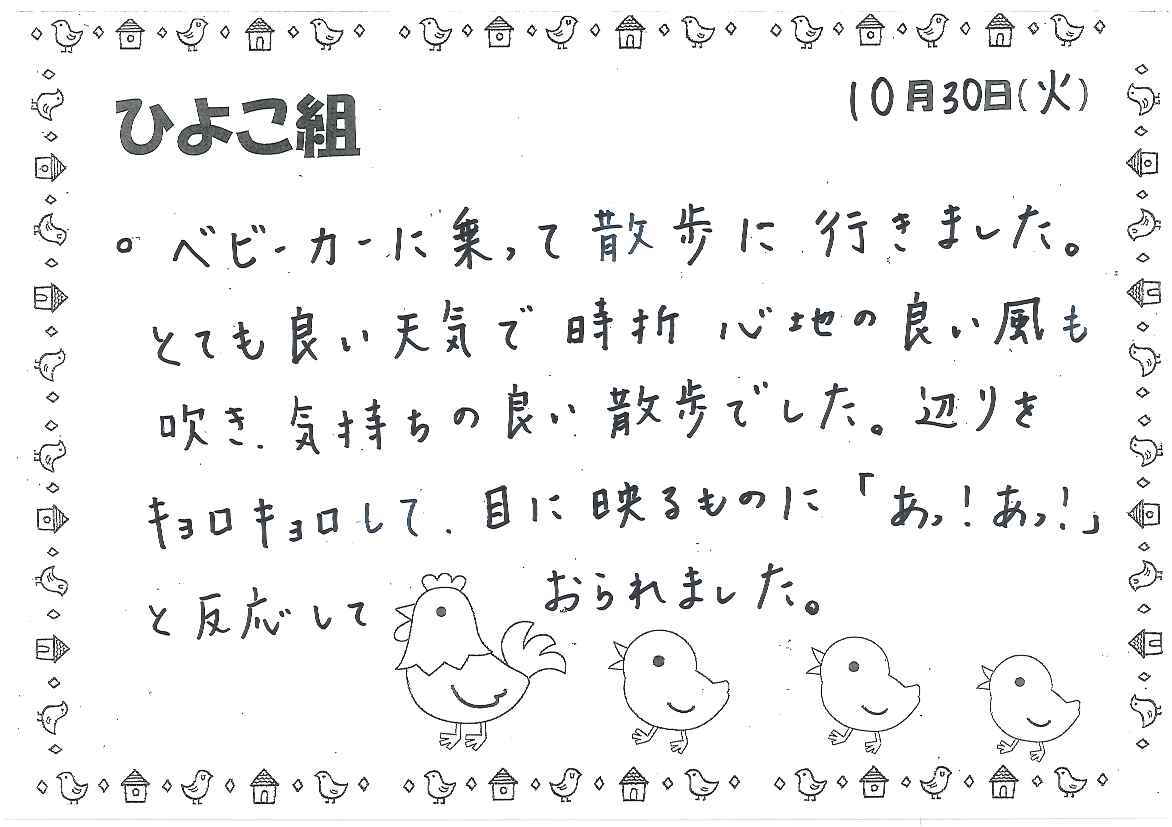 ひよこ組
10月30日(火)
。ベビーカーに乗って散歩に行きました。
とても良い天気で時折心地の良い風も
吹き、気持ちの良い散歩でした。辺りを
キョロキョロして、目に映るものに「あっ!あっ!」
と反応しておられました。